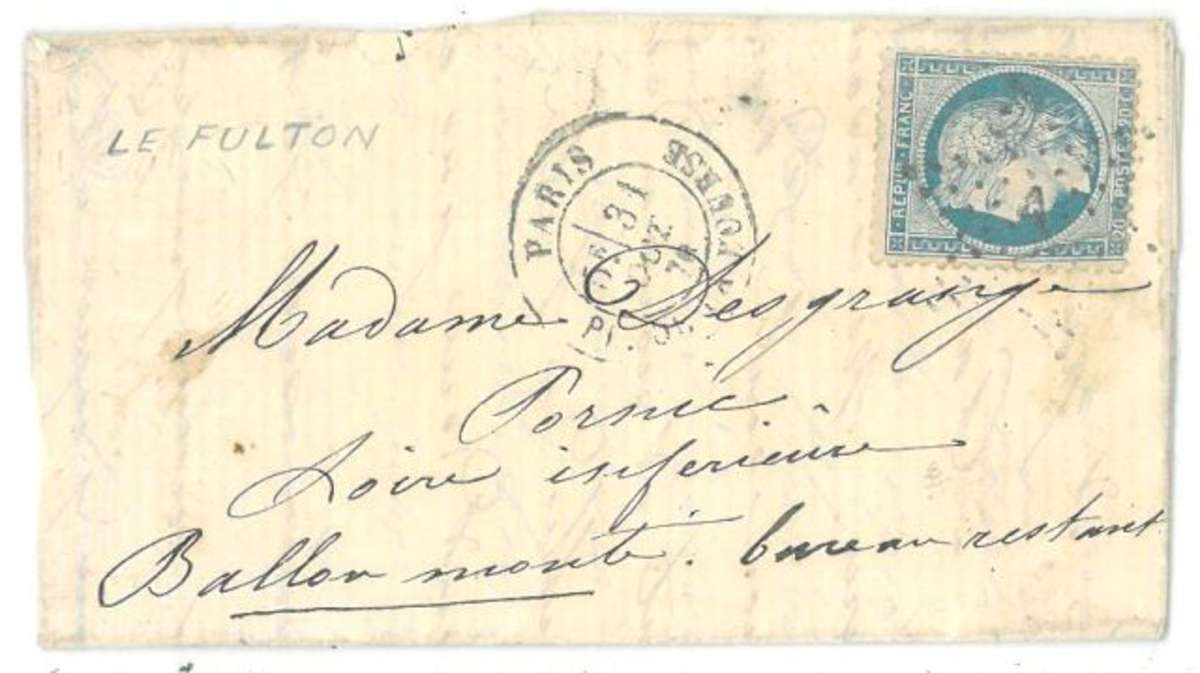 LE FULTON
PARIS
31
OCT.
REPUB · FRANC.
20 c POSTE 20 c
1
Madame Desgrange
Pornic.
Loire inferieure
Ballon monté. bureau restant